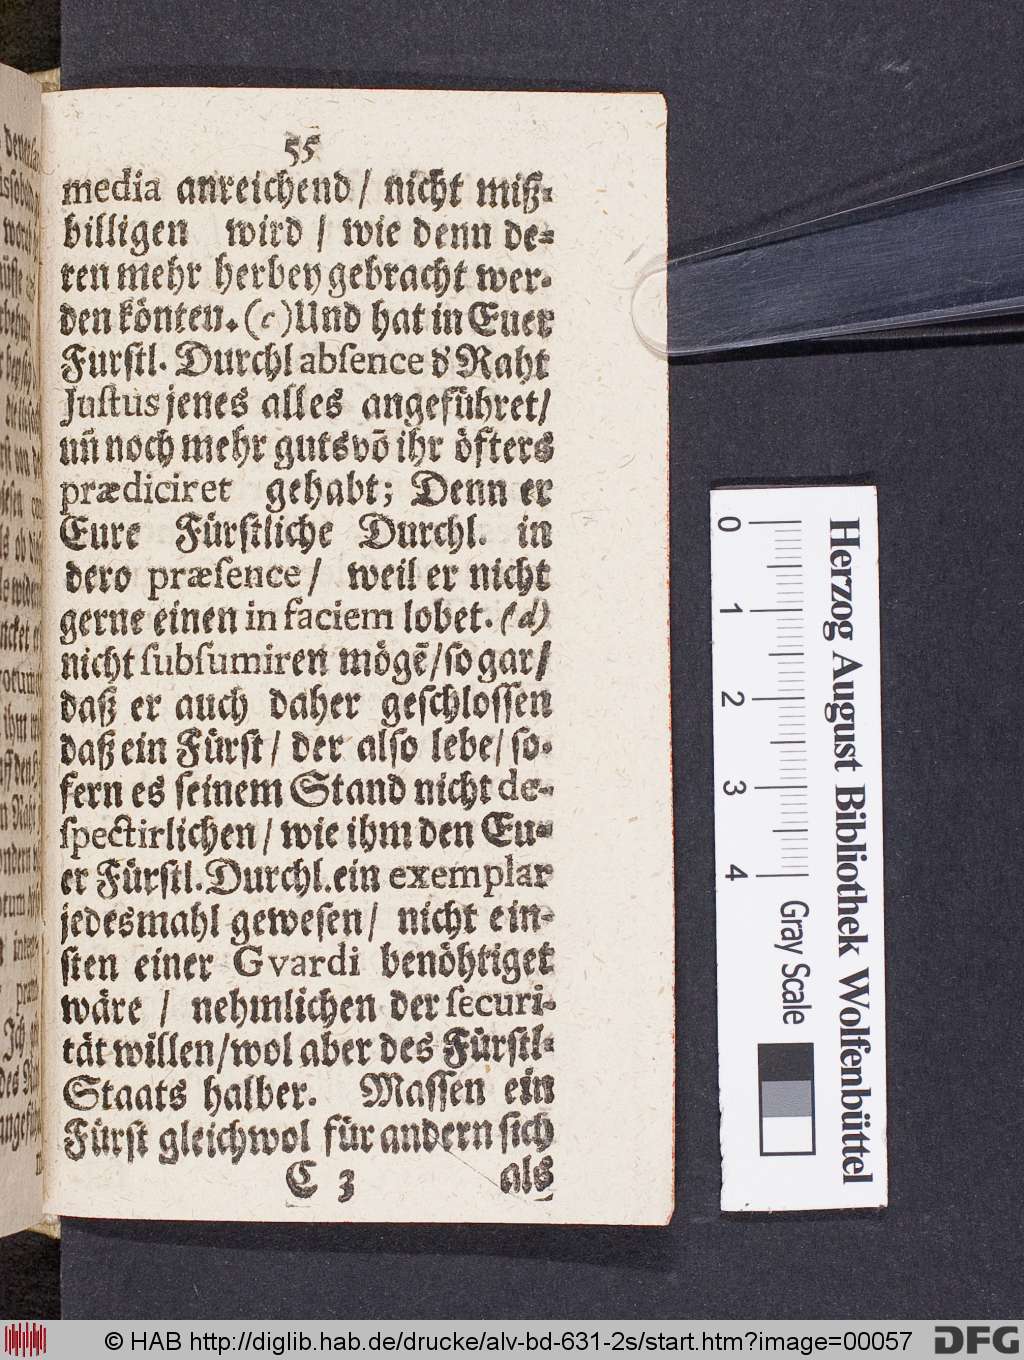 55
media anreichend / nicht miß⸗
billigen wird / wie denn de⸗
ren mehr herbey gebracht wer⸗
den könten. (c) Und hat in Euer
Furstl. Durchl absence d' Raht
Justus jenes alles angeführet /
uñ noch mehr guts võ ihr öfters
prædiciret gehabt; Denn er
Eure Fürstliche Durchl. in
dero præsence / weil er nicht
gerne einen in faciem lobet. (d)
nicht subsumiren mögẽ / so gar /
daß er auch daher geschlossen
daß ein Fürst / der also lebe / so⸗
fern es seinem Stand nicht de⸗
spectirlichen / wie ihm den Eu⸗
er Fürstl. Durchl. ein exemplar
jedesmahl gewesen / nicht ein⸗
sten einer Gvardi benöhtiget
wäre / nehmlichen der securi⸗
tät willen / wol aber des Fürstl⸗
Staats halber. Massen ein
Fürst gleichwol für andern sich
C 3 als
0 1 2 3 4
Gray Scale
Herzog August Bibliothek Wolfenbüttel
© HAB http://diglib.hab.de/drucke/alv-bd-631-2s/start.htm?image=00057
DFG